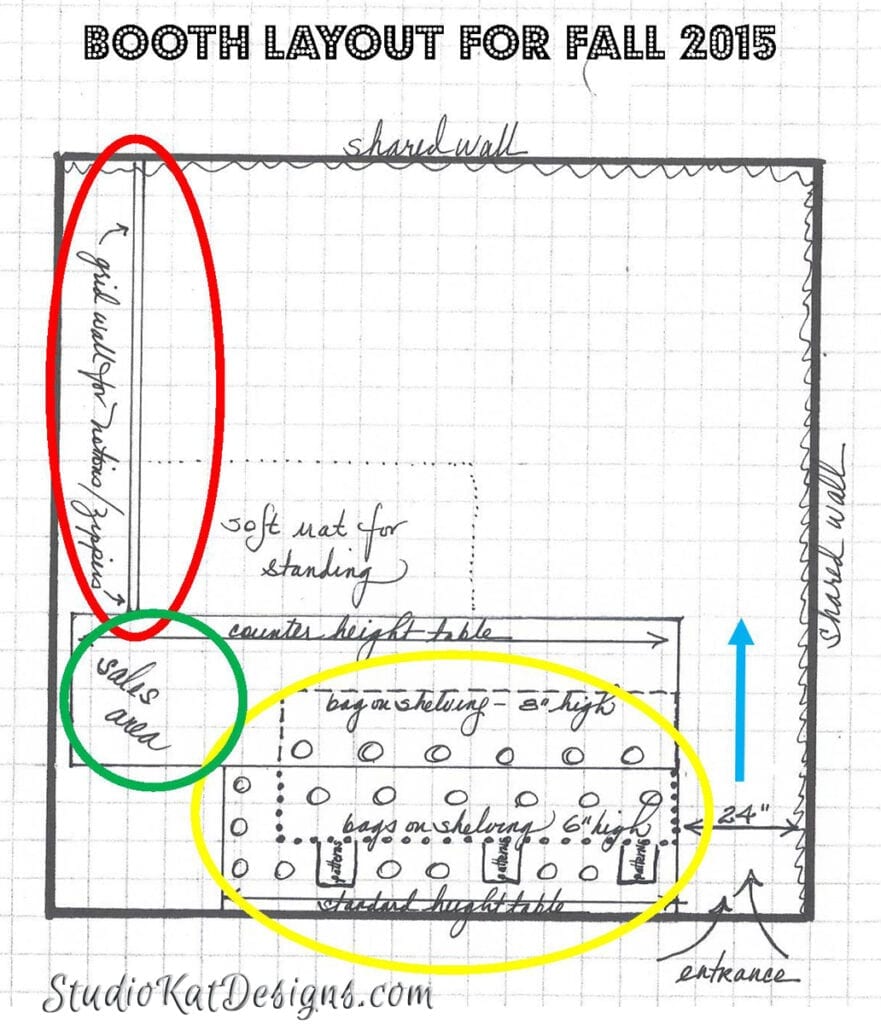 BOOTH LAYOUT FOR FALL 2015
shared wall
grid wall for notions/zippers
soft mat for
standing
shared wall
counter height table
sales
area
bag on shelving - 8" high
24"
bags on shelving 6" high
patterns
patterns
patterns
standard height table
entrance
StudioKatDesigns.com